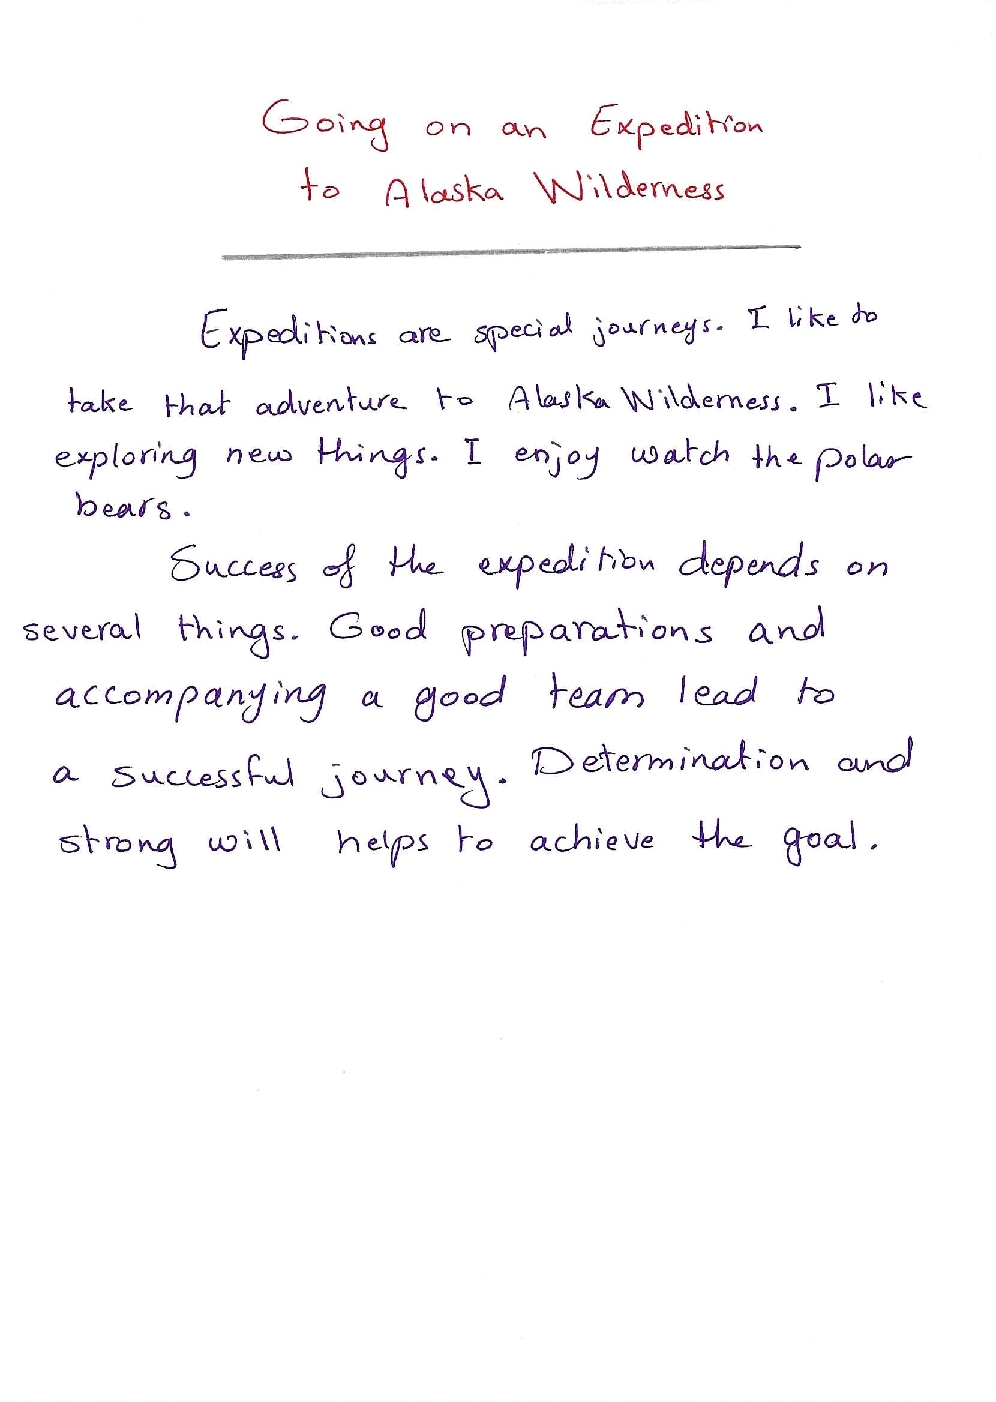 Going on an Expedition
to Alaska Wilderness
Expeditions are special journeys. I like to
take that adventure to Alaska Wilderness. I like
exploring new things. I enjoy watch the polar
bears.
Success of the expedition depends on
several things. Good preparations and
accompanying a good team lead to
a successful journey. Determination and
strong will helps to achieve the goal.